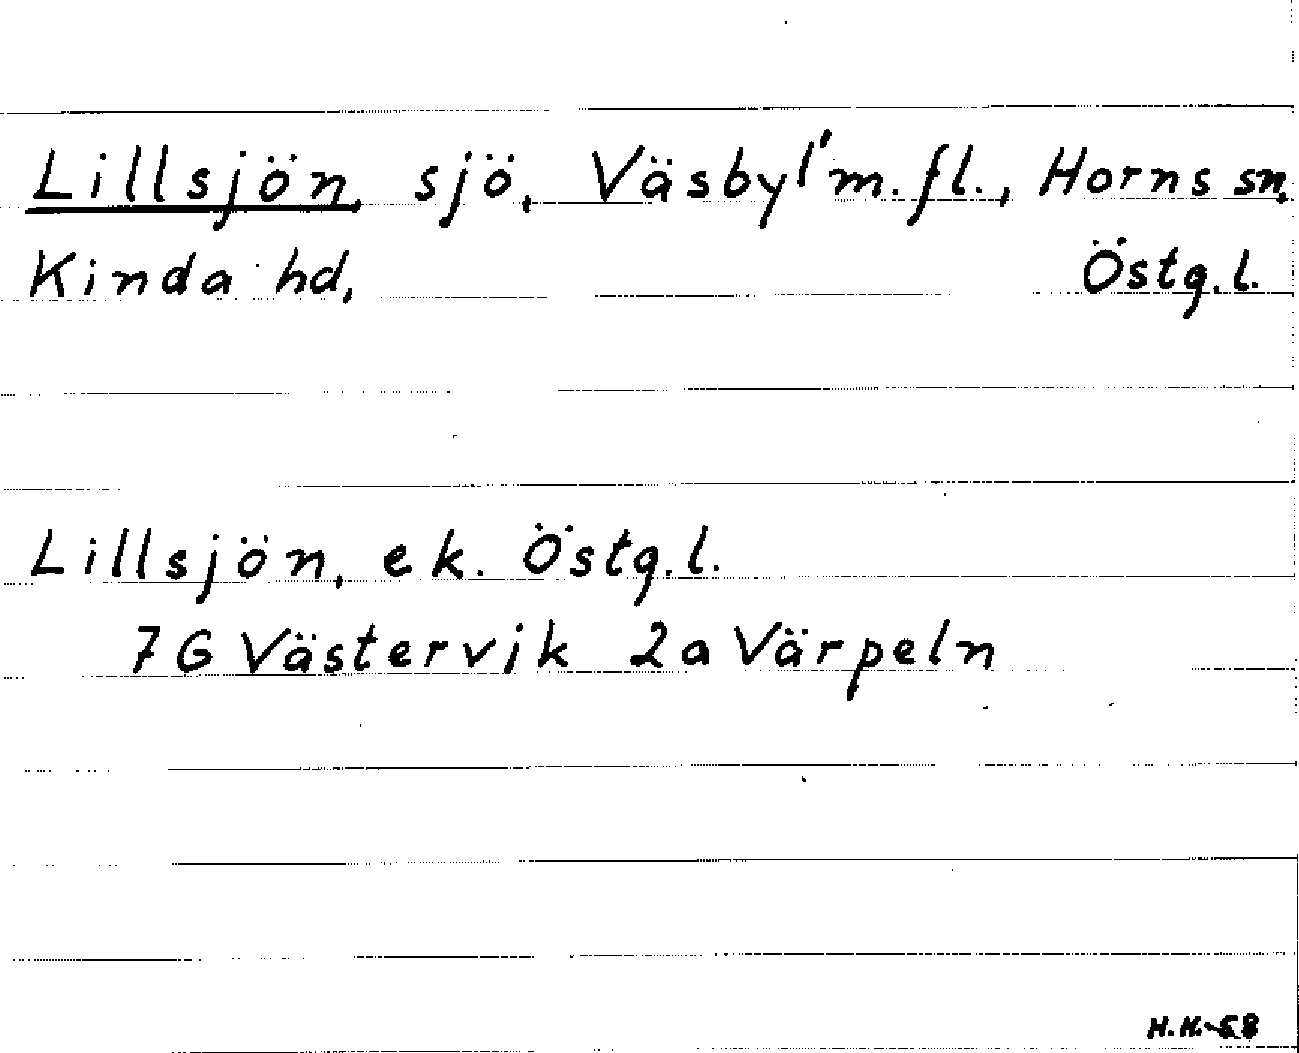 Lillsjön, sjö, Väsby 1' m.fl., Horns sn,
Kinda hd, Östg.l.
Lillsjön, ek. Östg.l.
7G Västervik 2a Värpeln
H.K.-58